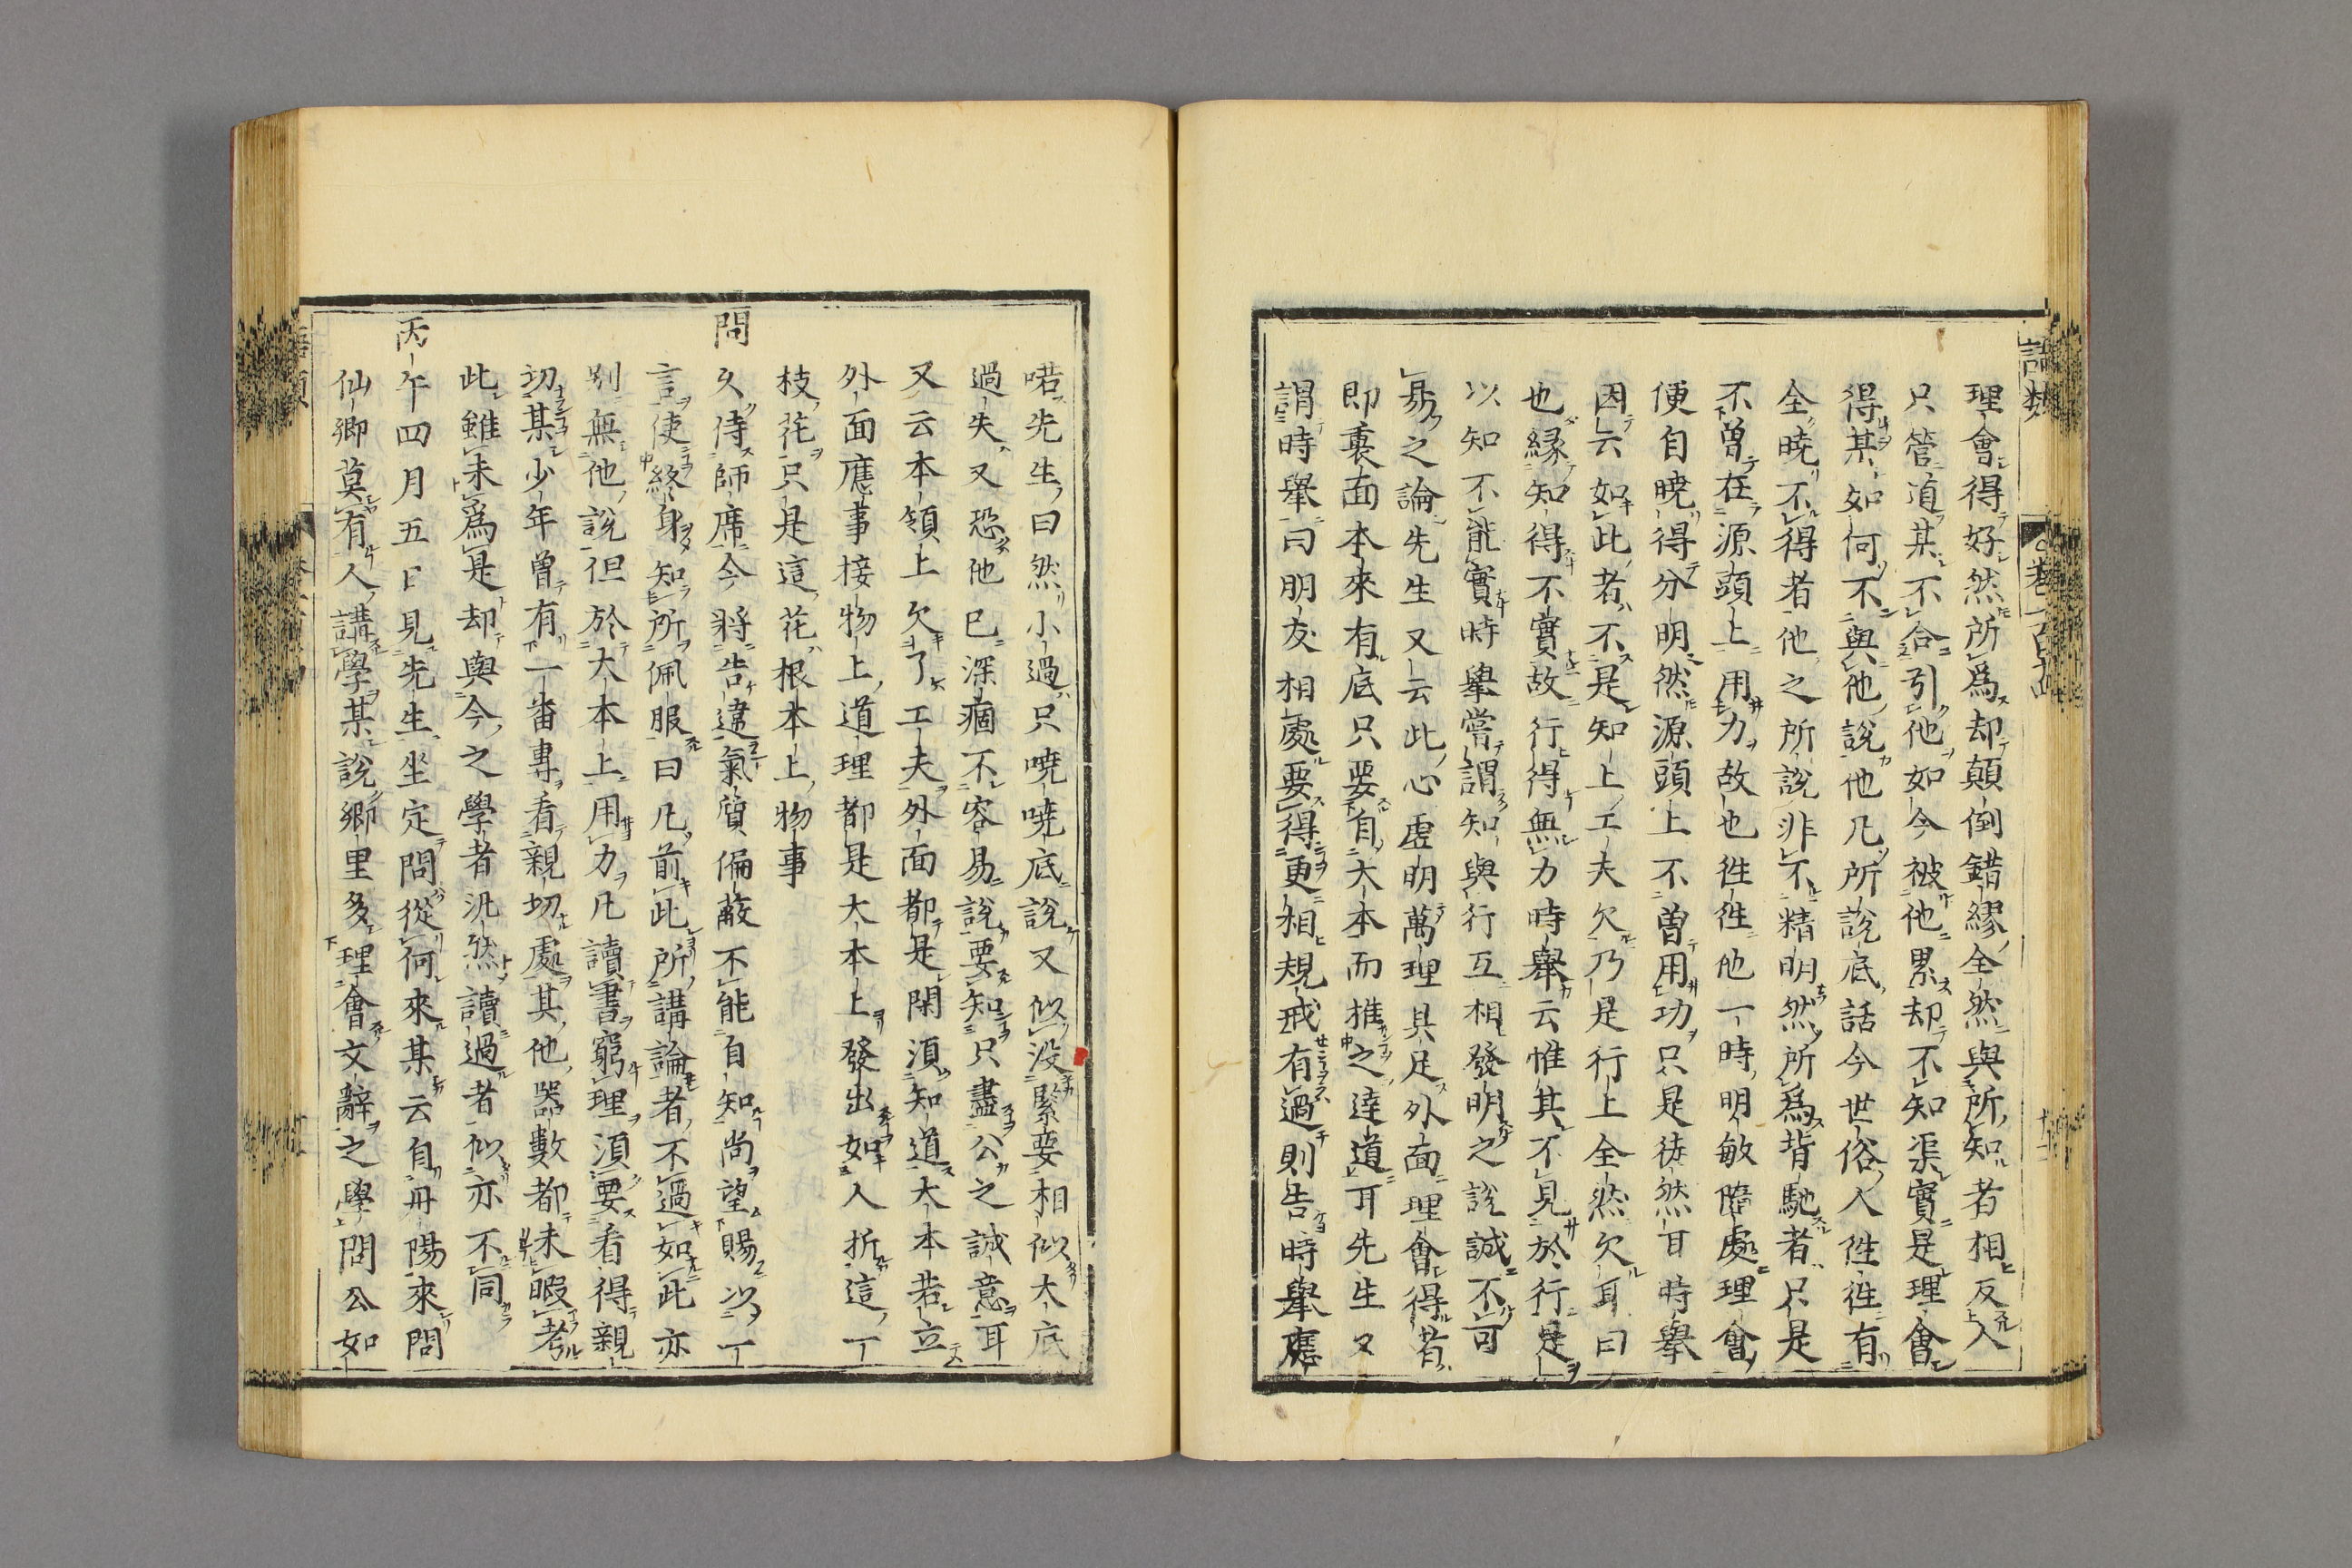 語類 卷一百十四
理會得好然所爲却顛倒錯繆全然與所知者相反人
只管道某不合引他如今被他累却不知渠實是理會
得某如何不與他說他凡所說底話今世俗人徃徃有
全曉不得者他之所說非不精明然所爲背馳者只是
不曾在源頭上用力故也徃徃他一時明敏隨處理會
便自曉得分明然源頭上不曾用功只是徒然耳時舉
因云如此者不是知上工夫欠乃是行上全然欠耳曰
也緣知得不實故行得無力時舉云惟其不見於行是
以知不能實時舉嘗謂知與行互相發明之說誠不可
易之論先生又云此心虛明萬理具足外面理會得者
即裏面本來有底只要自大本而推之達道耳先生又
謂時舉曰朋友相處要得更相規戒有過則告時舉應
喏先生曰然小過只曉曉底說又似没緊要相似大底
過失又恐他已深痼不容易說要知只盡公之誠意耳
又云本領上欠了工夫外面都是閑湏知道大本若立
外面應事接物上道理都是大本上發出如人折這一
枝花只是這花根本上物事
問久侍師席今將告違氣質偏蔽不能自知尚望賜以一
言使終身知所佩服曰凡前此所講論者不過如此亦
別無他說但於大本上用力凡讀書窮理湏要看得親
切某少年曾有一畨專看親切處其他器數都未暇考
此雖未爲是却與今之學者汎然讀過者似亦不同
丙午四月五日見先生坐定問從何來某云自丹陽來問
仙鄉莫有人講學某說鄉里多理會文辭之學問公如